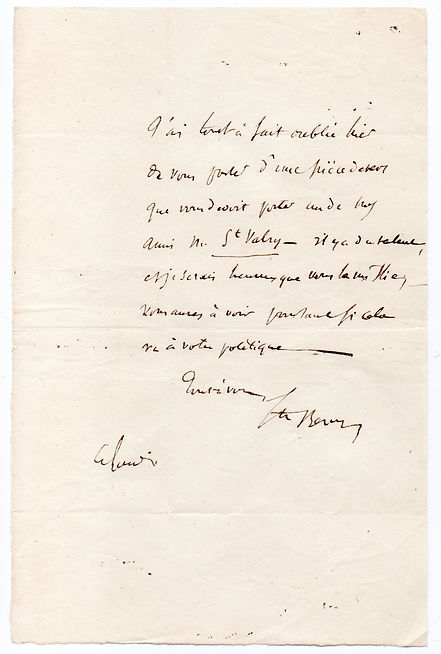 J'ai tout à fait oublié hier
de vous parler d'une pièce de vers
que vous devoit porter un de mes
amis Mr. St Valry — il y a du talent,
et je serais heureux que vous la missiez —
vous aurez à voir pourtant si cela
va à votre politique —
Tout à vous,
Ste Beuve
Ce lundi